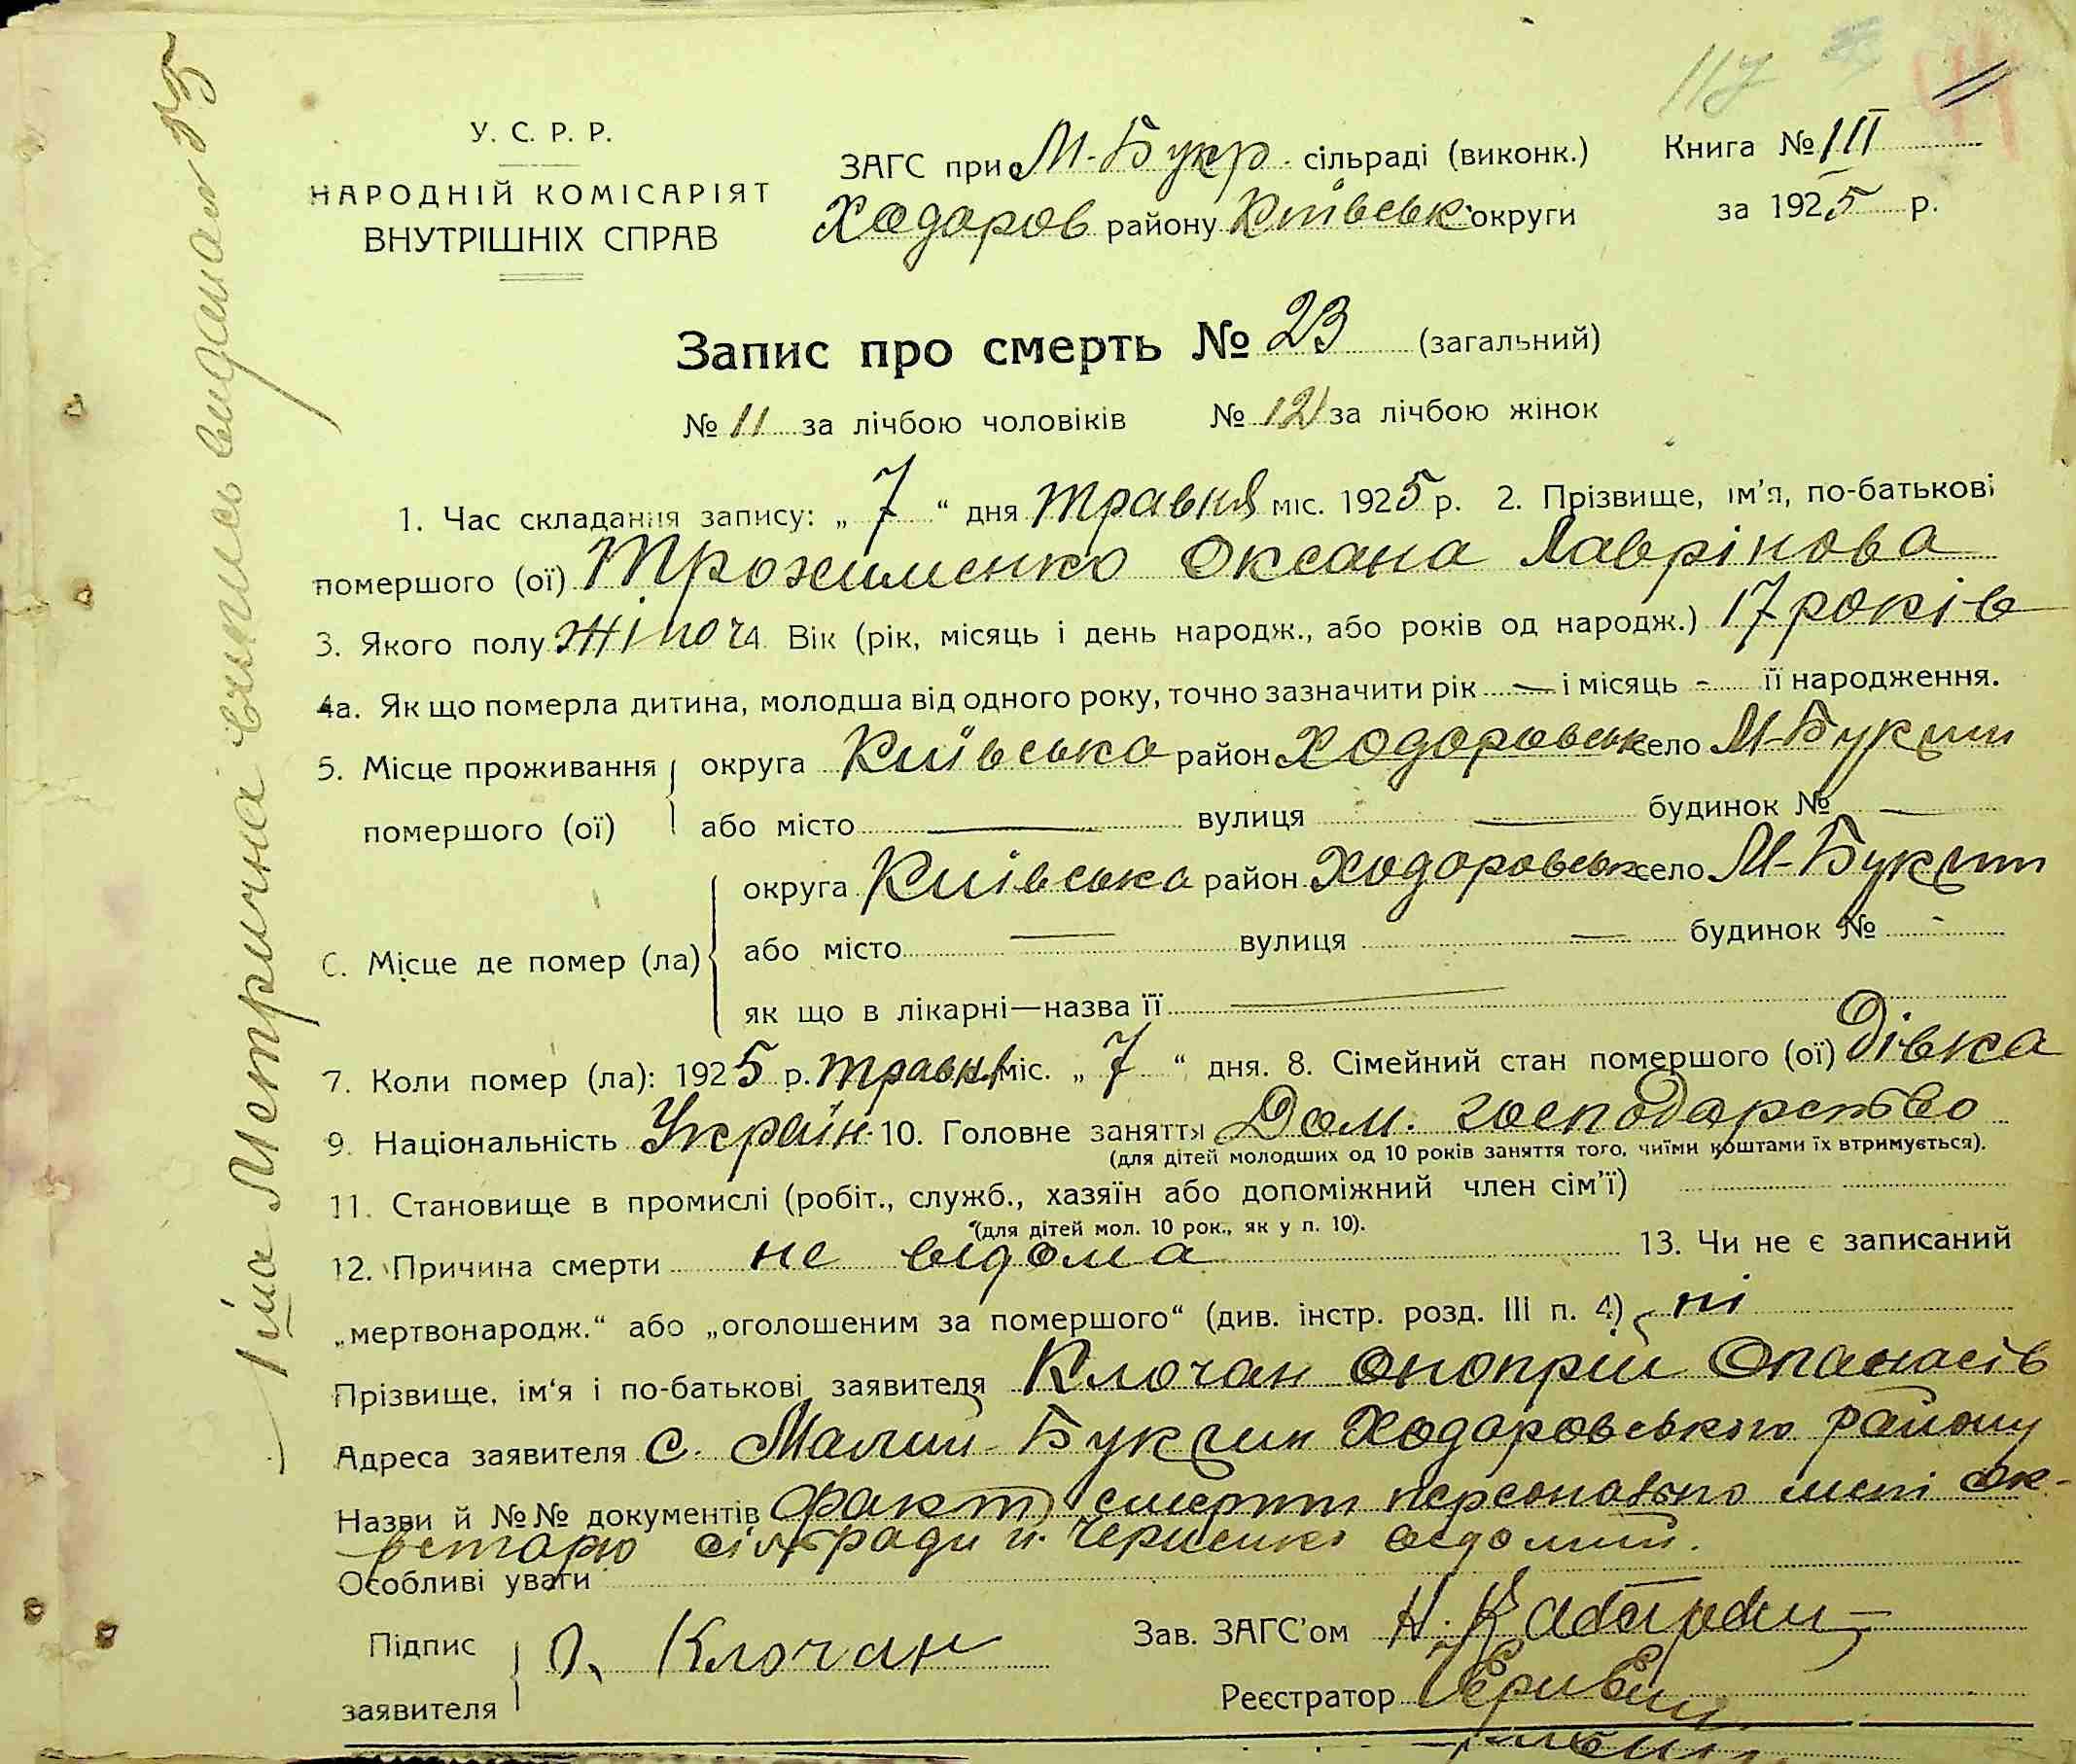 117
У. С. Р. Р.
НАРОДНІЙ КОМІСАРІЯТ
ВНУТРІШНІХ СПРАВ
ЗАГС при М.-Букр. сільраді (виконк.)
Ходоров району Київськ. округи
Книга № III
за 1925 р.
Запис про смерть № 23 (загальний)
№ 11 за лічбою чоловіків № 12 за лічбою жінок
1. Час складання запису: „ 7 “ дня травня міс. 1925 р. 2. Прізвище, ім'я, по-батькові
помершого (ої) Трохименко Оксана Лаврінова
3. Якого полу жіноч. Вік (рік, місяць і день народж., або років од народж.) 17 років
4а. Як що померла дитина, молодша від одного року, точно зазначити рік — і місяць - її народження.
5. Місце проживання округа Київська район Ходоровськ село М-Букрин
помершого (ої) або місто — вулиця — будинок № —
округа Київська район Ходоровськ село М-Букрин
6. Місце де помер (ла) або місто — вулиця — будинок № -
як що в лікарні—назва її —
7. Коли помер (ла): 1925 р. травня міс. „ 7 “ дня. 8. Сімейний стан помершого (ої) Дівка
9. Національність Україн. 10. Головне заняття Дом. господарство
(для дітей молодших од 10 років заняття того, чиїми коштами їх втримується).
11. Становище в промислі (робіт., служб., хазяїн або допоміжний член сім'ї)
(для дітей мол. 10 рок., як у п. 10).
12. Причина смерти не відома 13. Чи не є записаний
„мертвонародж.“ або „оголошеним за помершого“ (див. інстр. розд. III п. 4) ні
Прізвище, ім'я і по-батькові заявителя Клочан Онопрій Опанасів
Адреса заявителя с. Малий-Букрин Ходоровського району
Назви й №№ документів факт смерти персонально мені сек-
ретарю сільради відомий.
Особливі уваги
Підпис
заявителя О. Клочан
Зав. ЗАГС'ом
Реєстратор
1іша Метрична випись видана